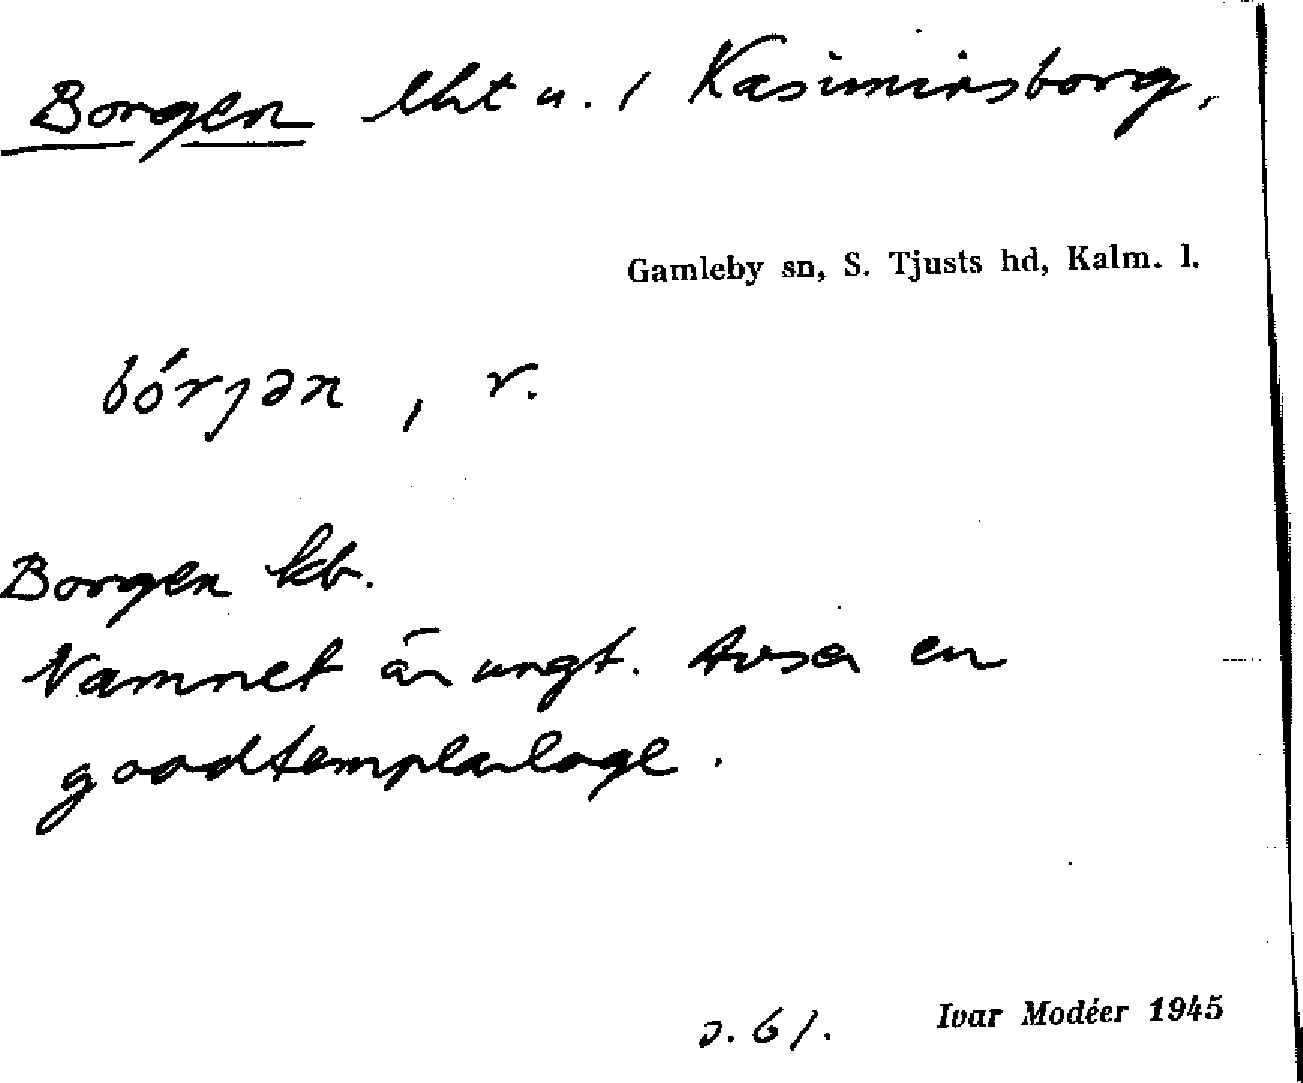 Borgen lht u. / Kasimirsborg,
Gamleby sn, S. Tjusts hd, Kalm. l.
bórjən, r.
Borgen kb.
Namnet är ungt. Avser en
goodtemplarloge.
s. 61. Ivar Modéer 1945